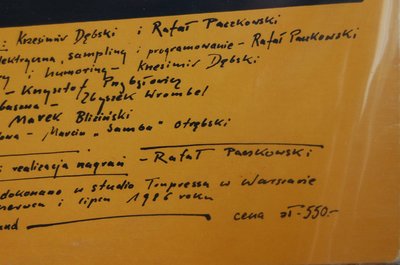 Krzesimir Dębski i Rafał Paczkowski
elektryczna, sampling i programowanie - Rafał Paczkowski
i humoring - Krzesimir Dębski
- Krzysztof Przybyłowicz
basowa - Zbyszek Wrombel
Marek Bliziński
- Marcin "Samba" Otrębski
realizacja nagrań - Rafał Paczkowski
dokonano w studio Tonpressu w Warszawie
czerwcu i lipcu 1986 roku
cena zł 550.-